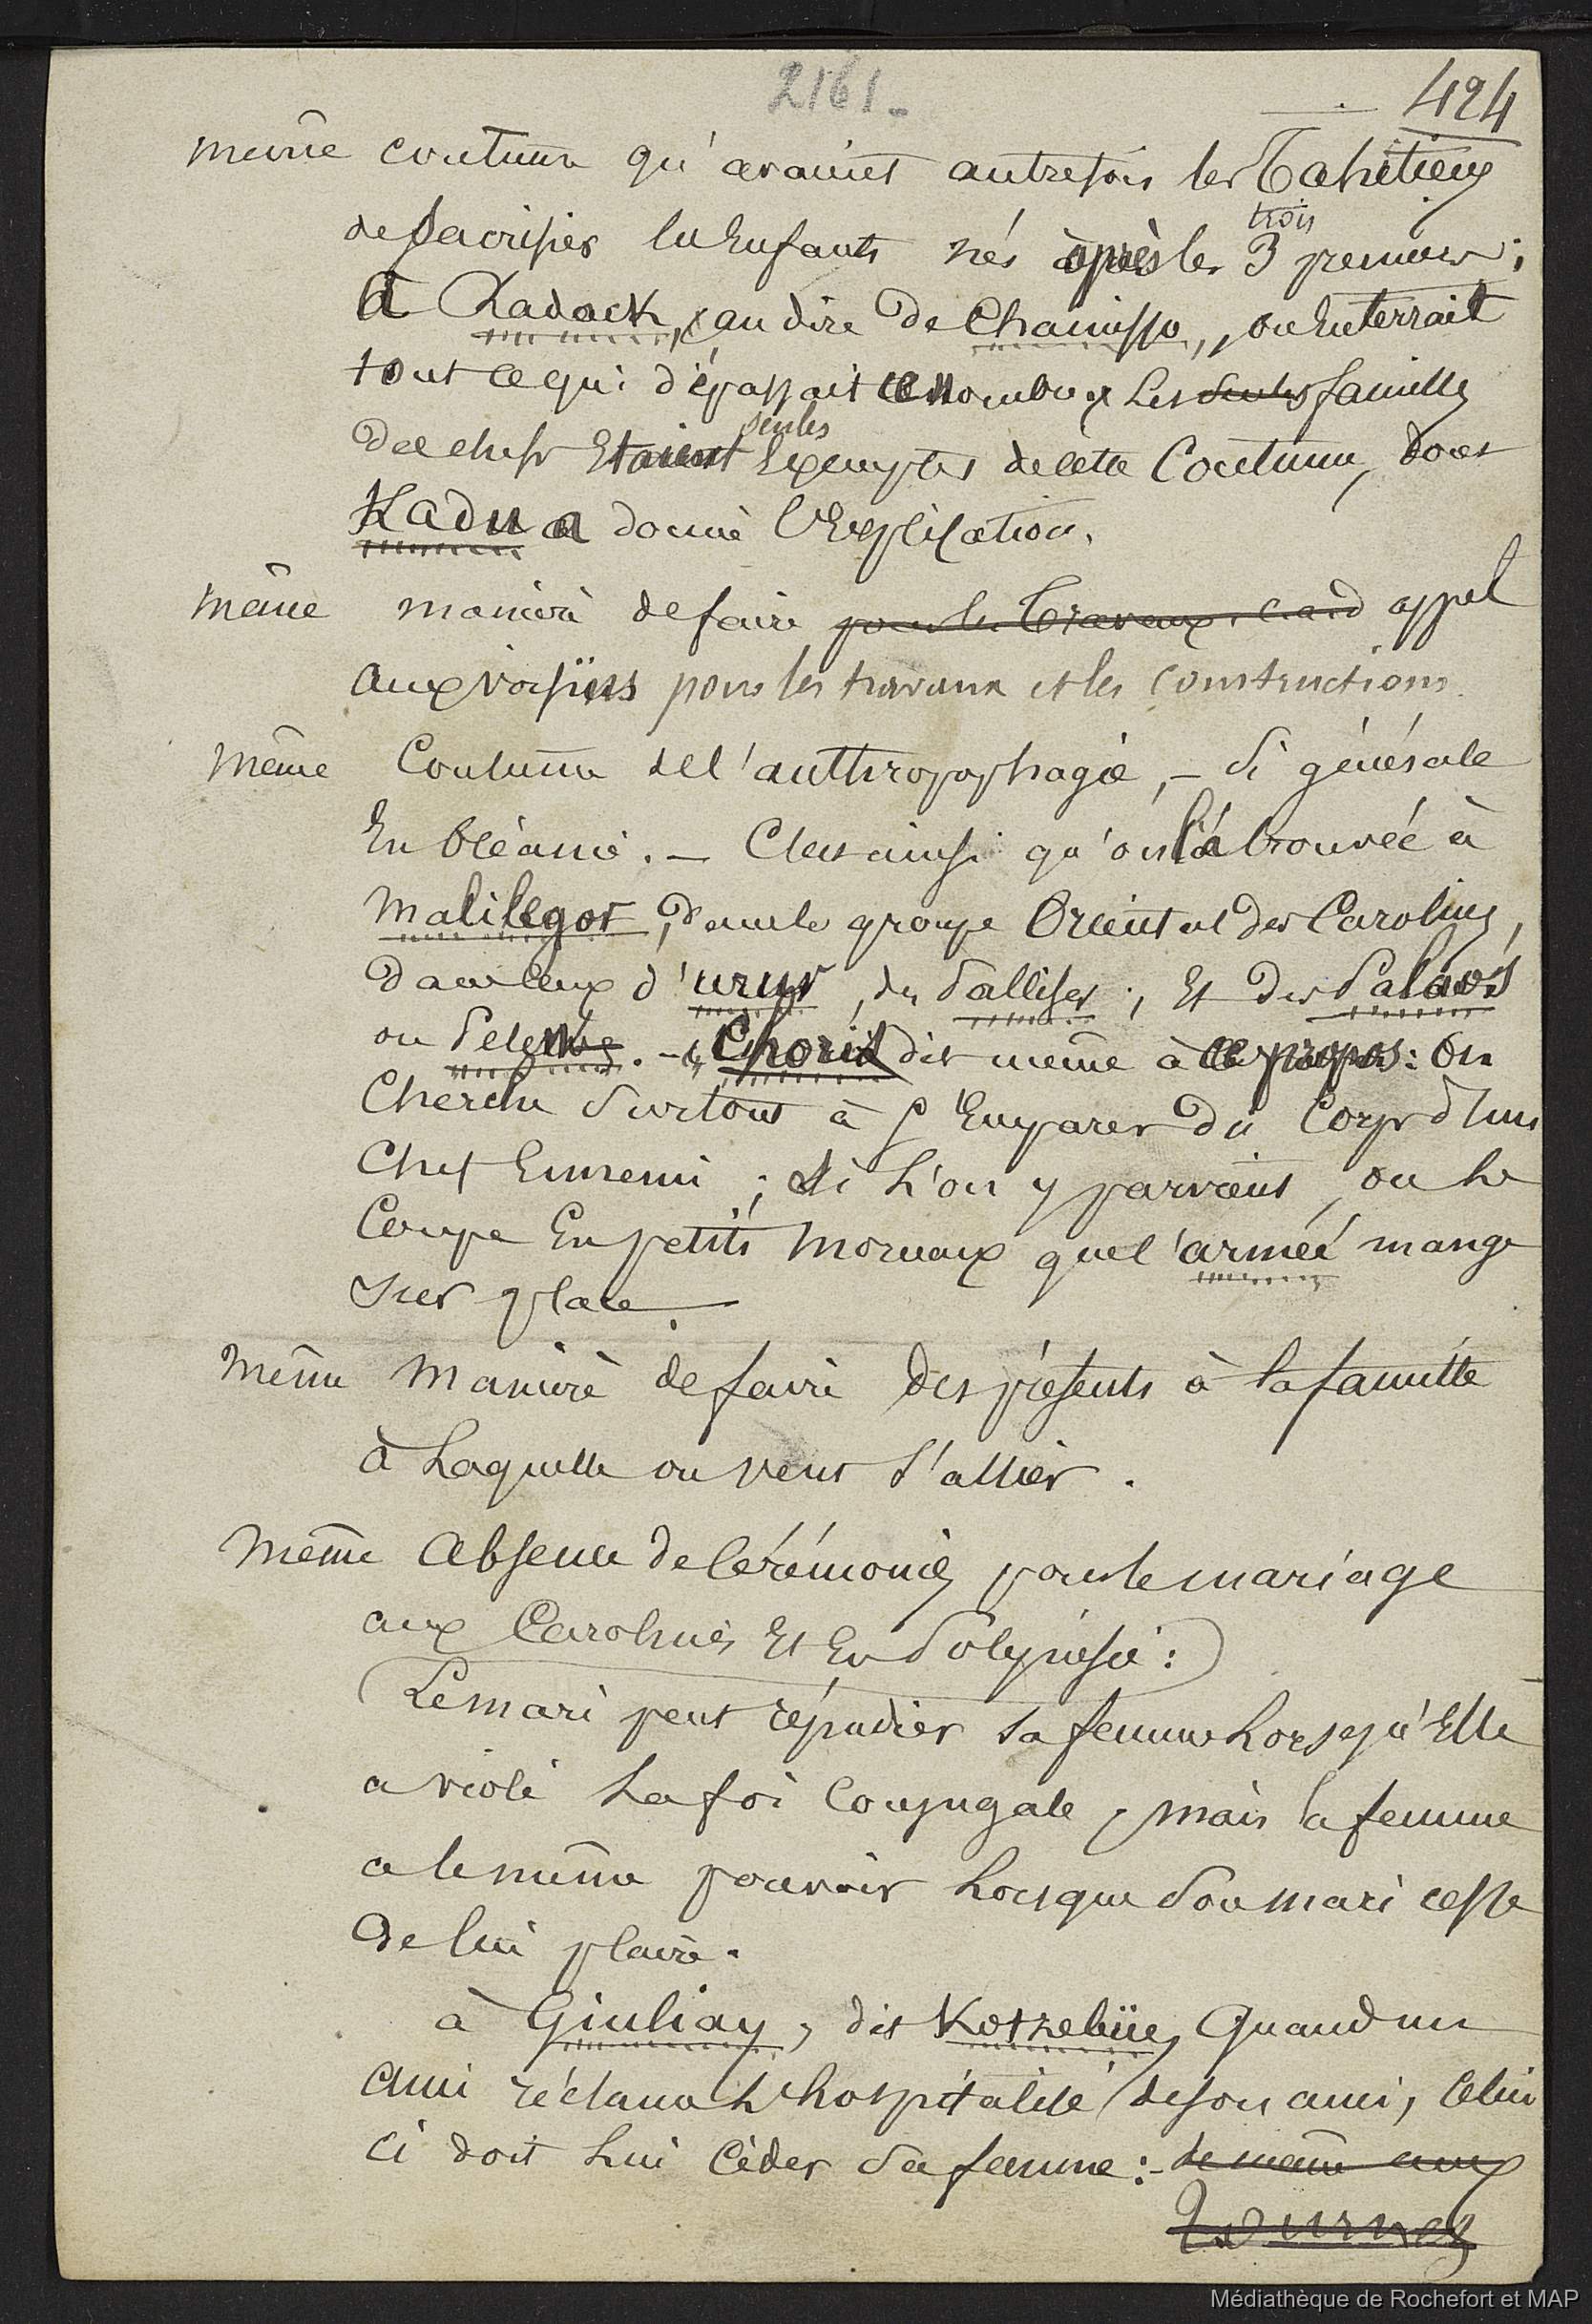 2161_
424
même coutume qu'avaient autrefois les Tahitiens
trois
de sacrifier les Enfants nés après les 3 premiers;
à Radack, au dire de Chamisso, on Enterrait
tout ce qui dépassait ce nombre, Les seules familles
seules
de chefs Etaient Exemptes de cette Coutume, dont
Kadu a donné l'Explication.
même manière de faire pour les travaux appel
aux voisins pour les travaux et les constructions.
même Coutume de l'anthropophagie, - si générale
En Océanie. - C'est ainsi qu'on l'a trouvée à
Malilegot, dans le groupe Oriental des Carolines,
dans ceux d'urur, des Palliser; Et des Palaos
ou Pelew. - " Choris dit même à ce propos: On
Cherche Surtout à s'Emparer du Corps d'un
Chef Ennemi; si L'on y parvient, on le
Coupe En petits Morceaux que l'armée mange
sur place.
même Manière de faire des présents à la famille
à Laquelle on veut s'allier.
même Absence de Cérémonies pour le mariage
aux Carolines Et En Polynésie:
Le mari peut répudier sa femme Lorsqu'Elle
a violé La foi Conjugale, mais la femme
a le même pouvoir Lorsque Son mari cesse
de lui plaire.
à Giuliay, dit Kotzebüe, Quand un
Ami réclame L'hospitalité de son ami, Celui
ci doit Lui Céder Sa femme: - de même aux
Médiathèque de Rochefort et MAP